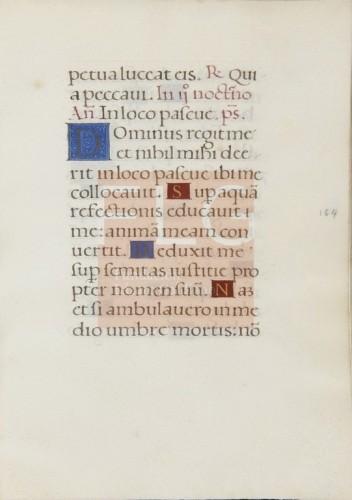 petua luceat eis. ℟. Qui
a peccaui. In ij noct̄no
An̄ In loco pascue. ps̄.
Dominus regit me
et nihil mihi dee
rit in loco pascue ibi me
collocauit. Sup aquā
refectionis educauit
me: animā meam con
uertit. Deduxit me
sup semitas iustitie pro
pter nomen suū. Naz
et si ambulauero in me
dio umbre mortis: nō
164